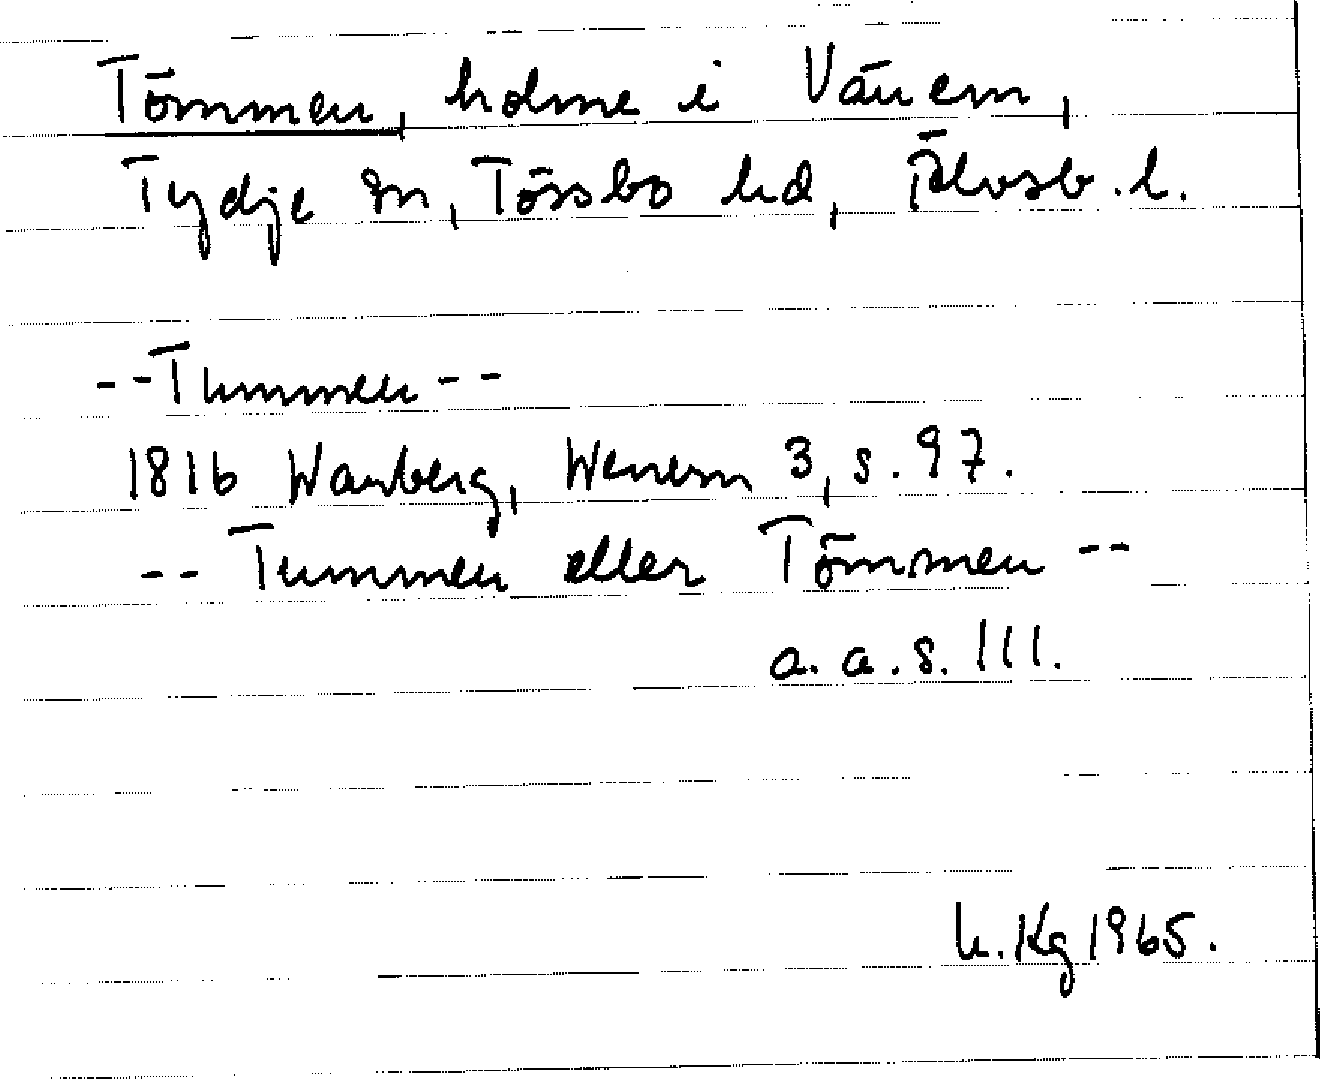 Tömmen, holme i Vänern,
Tydje sn, Tössbo hd, Älvsb. l.
--Tummen--
1816 Warberg, Wenern 3, s. 97.
-- Tummen eller Tömmen --
a. a. s. 111.
h. Kg 1965.